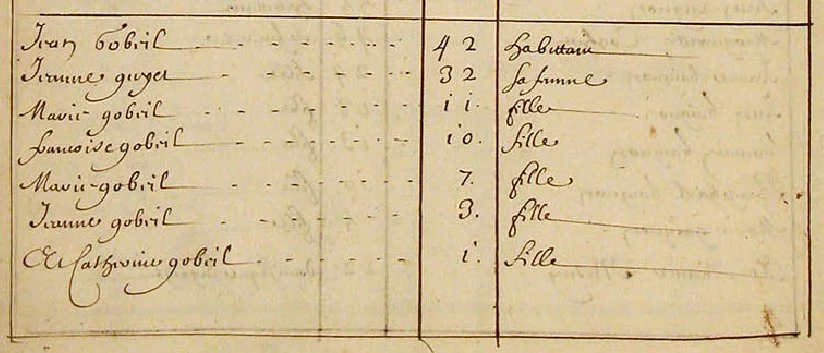 Jean Gobeil 42 habittant
Jeanne guyet 32 sa femme
Marie gobeil 11 fille
francoise gobeil 10. fille
Marie gobeil 7. fille
Jeanne gobeil 3. fille
Et Catherine gobeil 1. fille